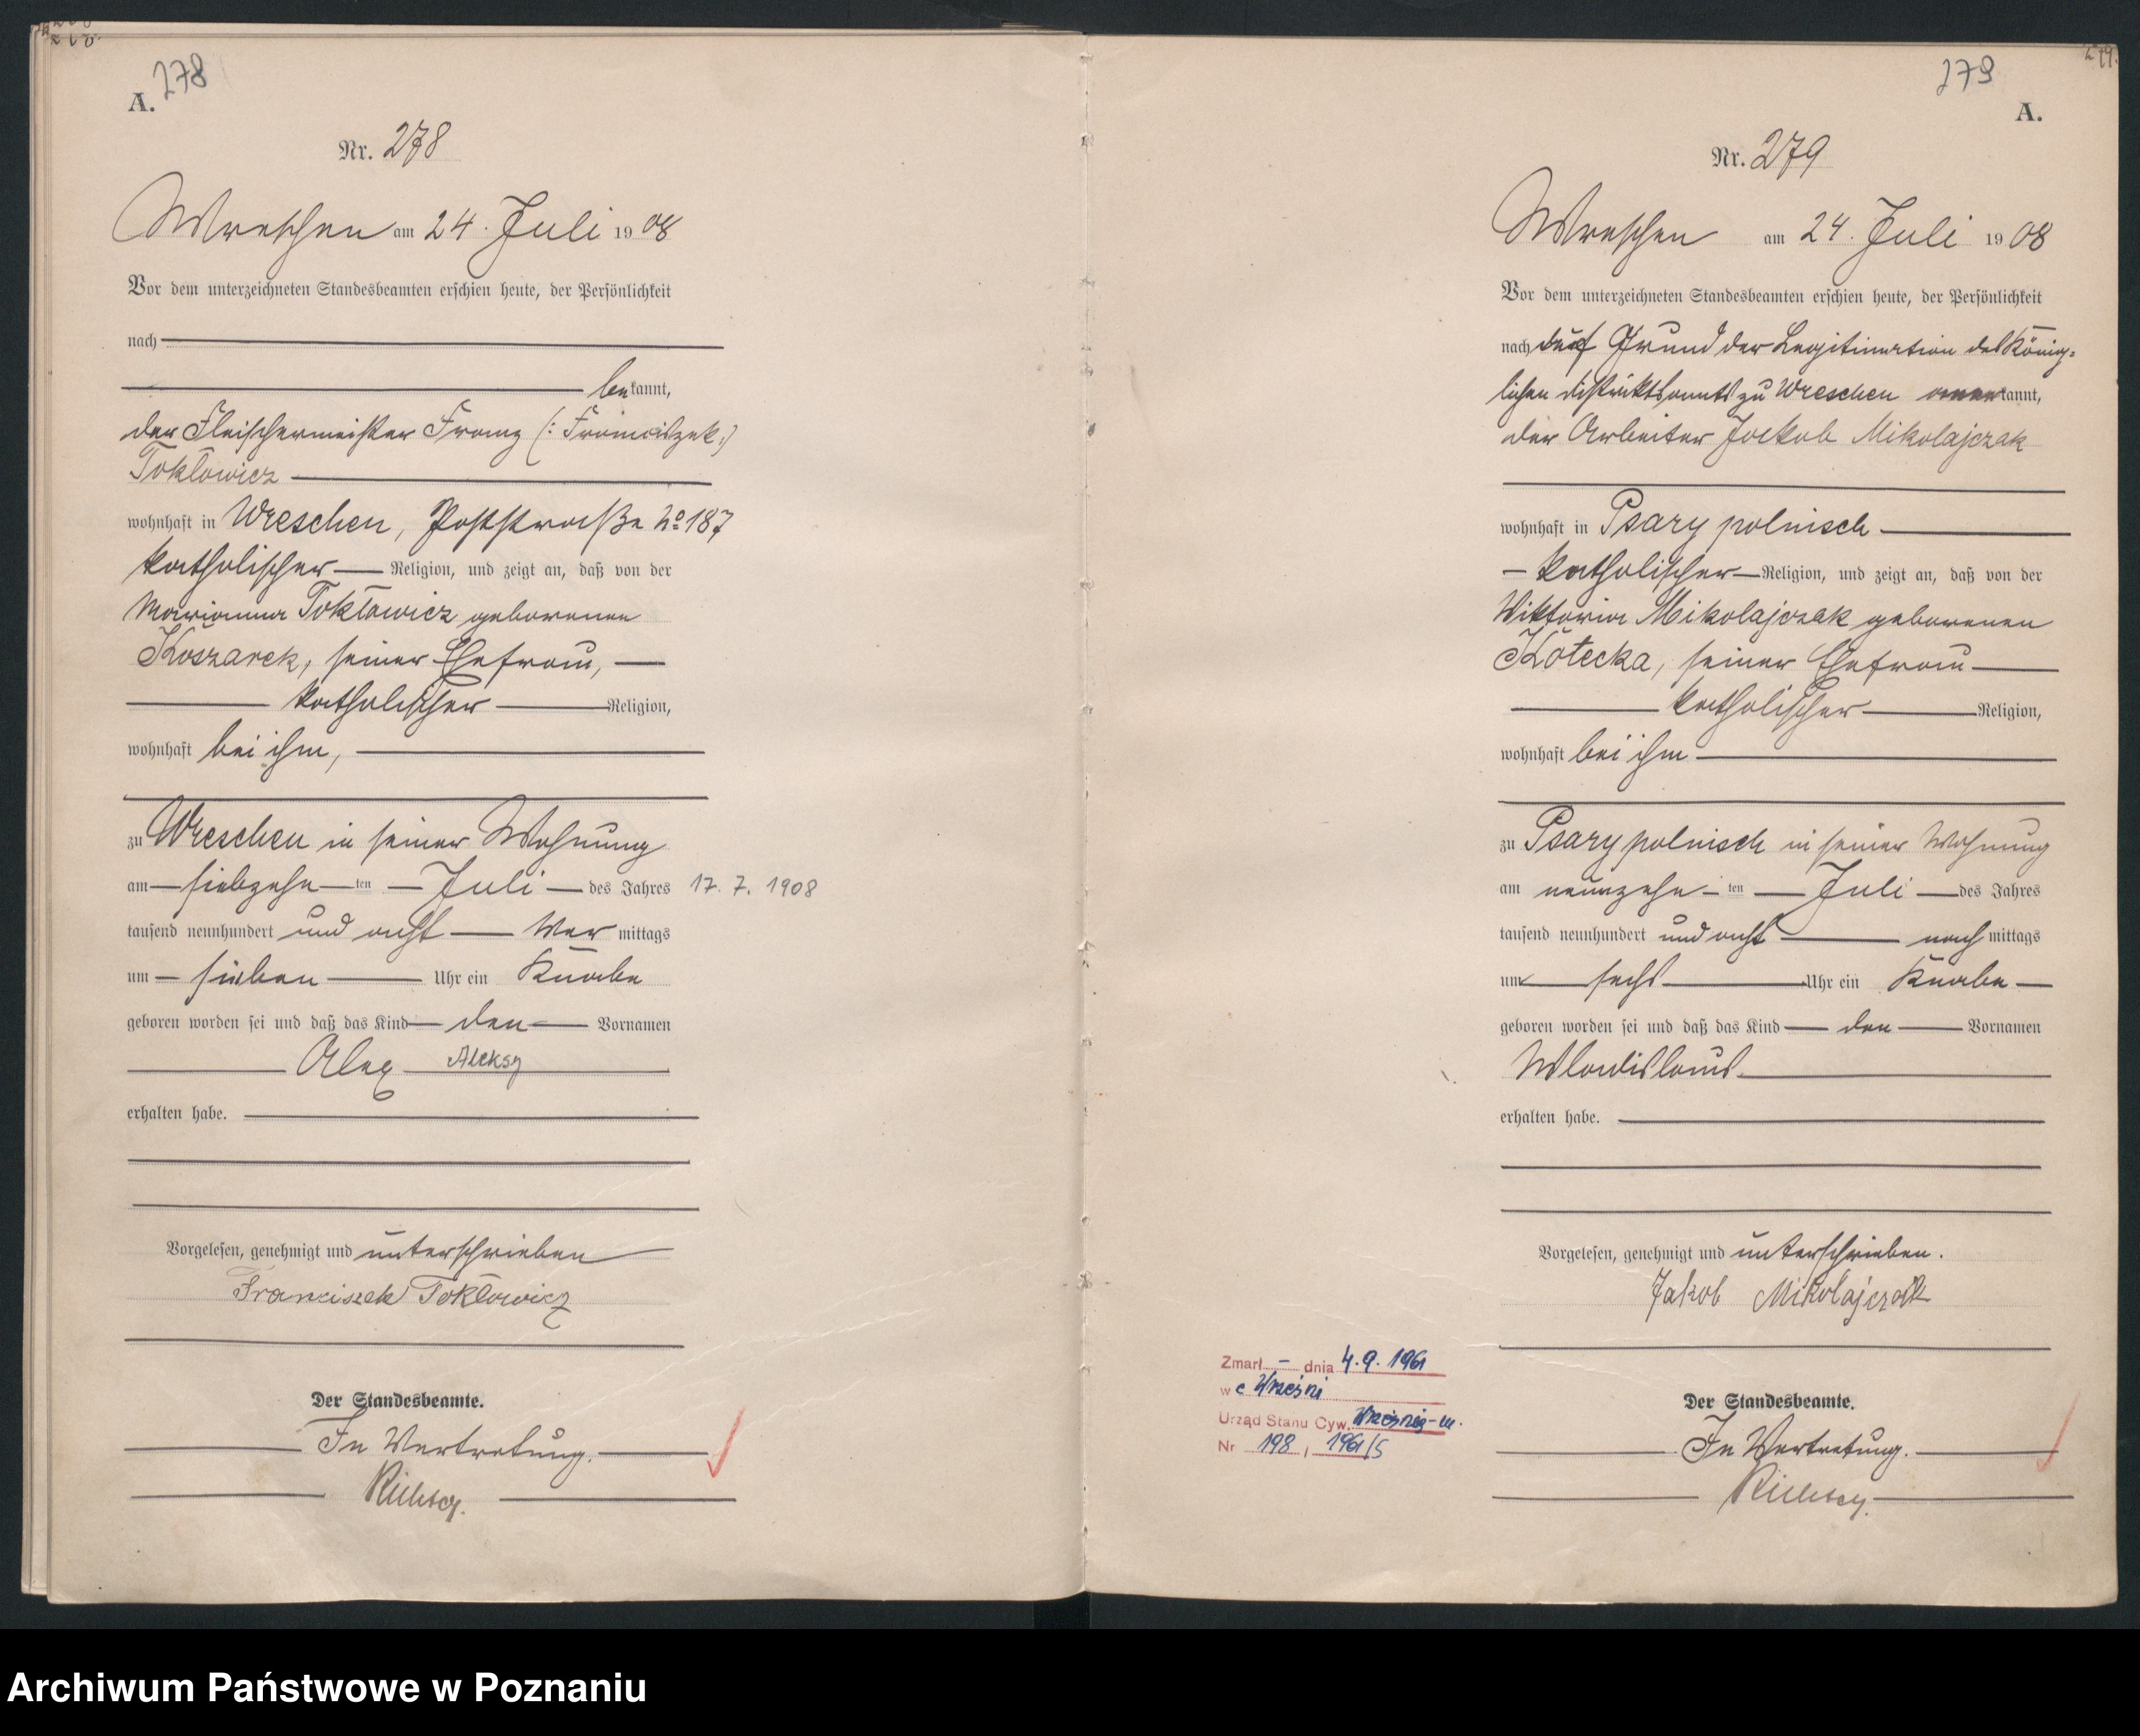 278
A.
Nr. 278
Wreschen am 24. Juli 1908
Vor dem unterzeichneten Standesbeamten erschien heute, der Persönlichkeit
nach
bekannt,
der Fleischermeister Franz (: Franciszek :)
Toktowicz
wohnhaft in Wreschen, Poststraße No 187
katholischer Religion, und zeigt an, daß von der
Marianna Toktowicz geborenen
Koszarek, seiner Ehefrau,
katholischer Religion,
wohnhaft bei ihm,
zu Wreschen in seiner Wohnung
am siebzehnten Juli des Jahres 17. 7. 1908
tausend neunhundert und acht Vormittags
um sieben Uhr ein Knabe
geboren worden sei und daß das Kind den Vornamen
Alex Aleksy
erhalten habe.
Vorgelesen, genehmigt und unterschrieben
Franciszek Toktowicz
Der Standesbeamte.
In Vertretung.
279
279.
A.
Nr. 279
Wreschen am 24. Juli 1908
Vor dem unterzeichneten Standesbeamten erschien heute, der Persönlichkeit
nach auf Grund der Legitimation des König-
lichen Distriktsamts zu Wreschen anerkannt,
der Arbeiter Jakob Mikolajczak
wohnhaft in Psary polnisch
katholischer Religion, und zeigt an, daß von der
Wiktoria Mikolajczak geborenen
Kotecka, seiner Ehefrau
katholischer Religion,
wohnhaft bei ihm
zu Psary polnisch in seiner Wohnung
am neunzehnten Juli des Jahres
tausend neunhundert und acht nachmittags
um sechs Uhr ein Knabe
geboren worden sei und daß das Kind den Vornamen
Wladislaus
erhalten habe.
Vorgelesen, genehmigt und unterschrieben.
Jakob Mikolajczak
Der Standesbeamte.
In Vertretung.
Zmarł – dnia 4.9.1961
we Wrześni
Urząd Stanu Cyw. Września-m.
Nr 198 / 1961/S
Archiwum Państwowe w Poznaniu